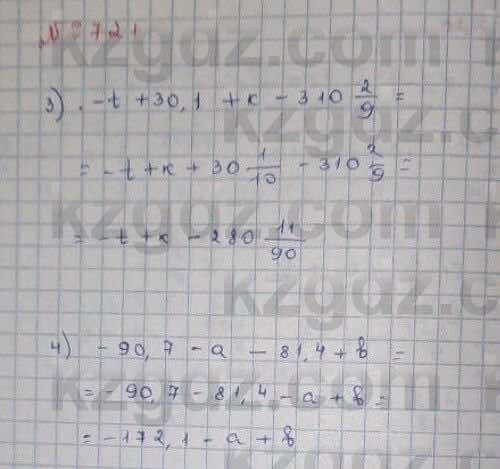 № 721
3) -t + 30,1 + к - 310 2/9 =
= -t + к + 30 1/10 - 310 2/9 =
= -t + к - 280 11/90
4) -90,7 - a - 81,4 + b =
= -90,7 - 81,4 - a + b =
= -172,1 - a + b
kzgdz.com